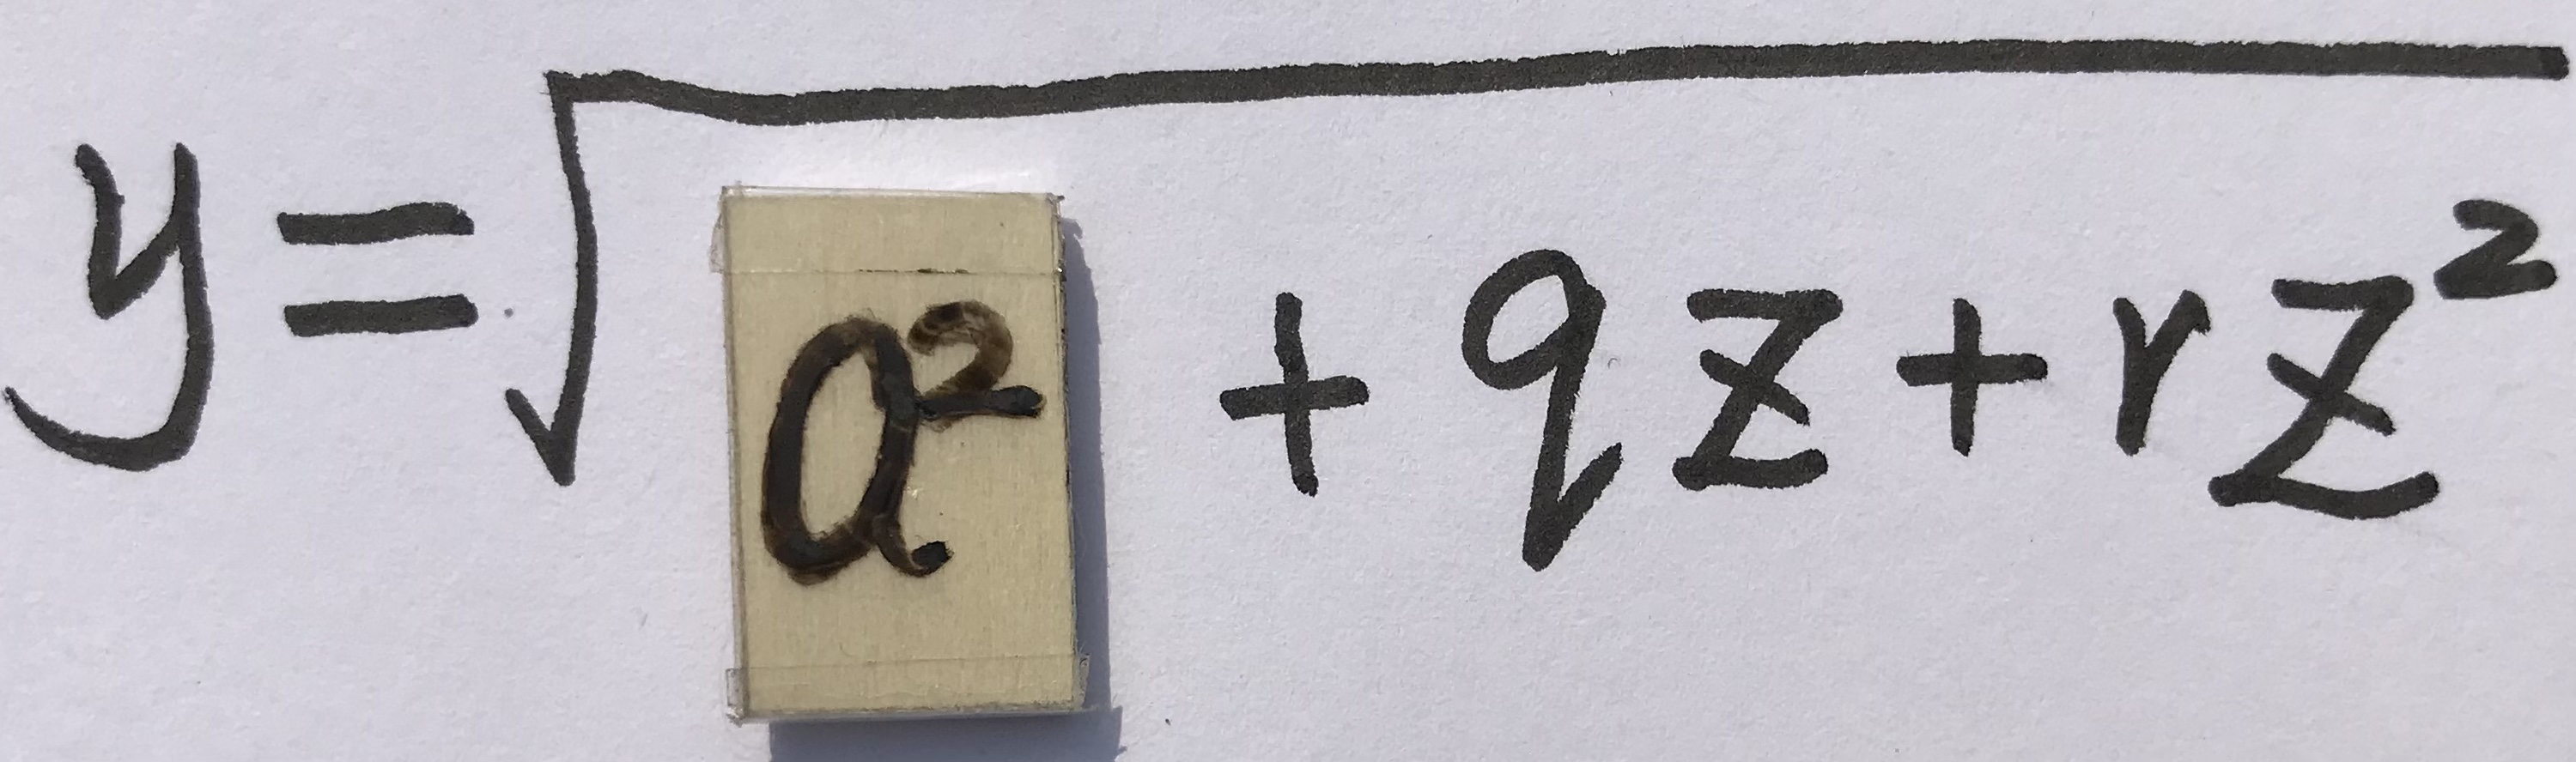 y=√a²+qz+rz²